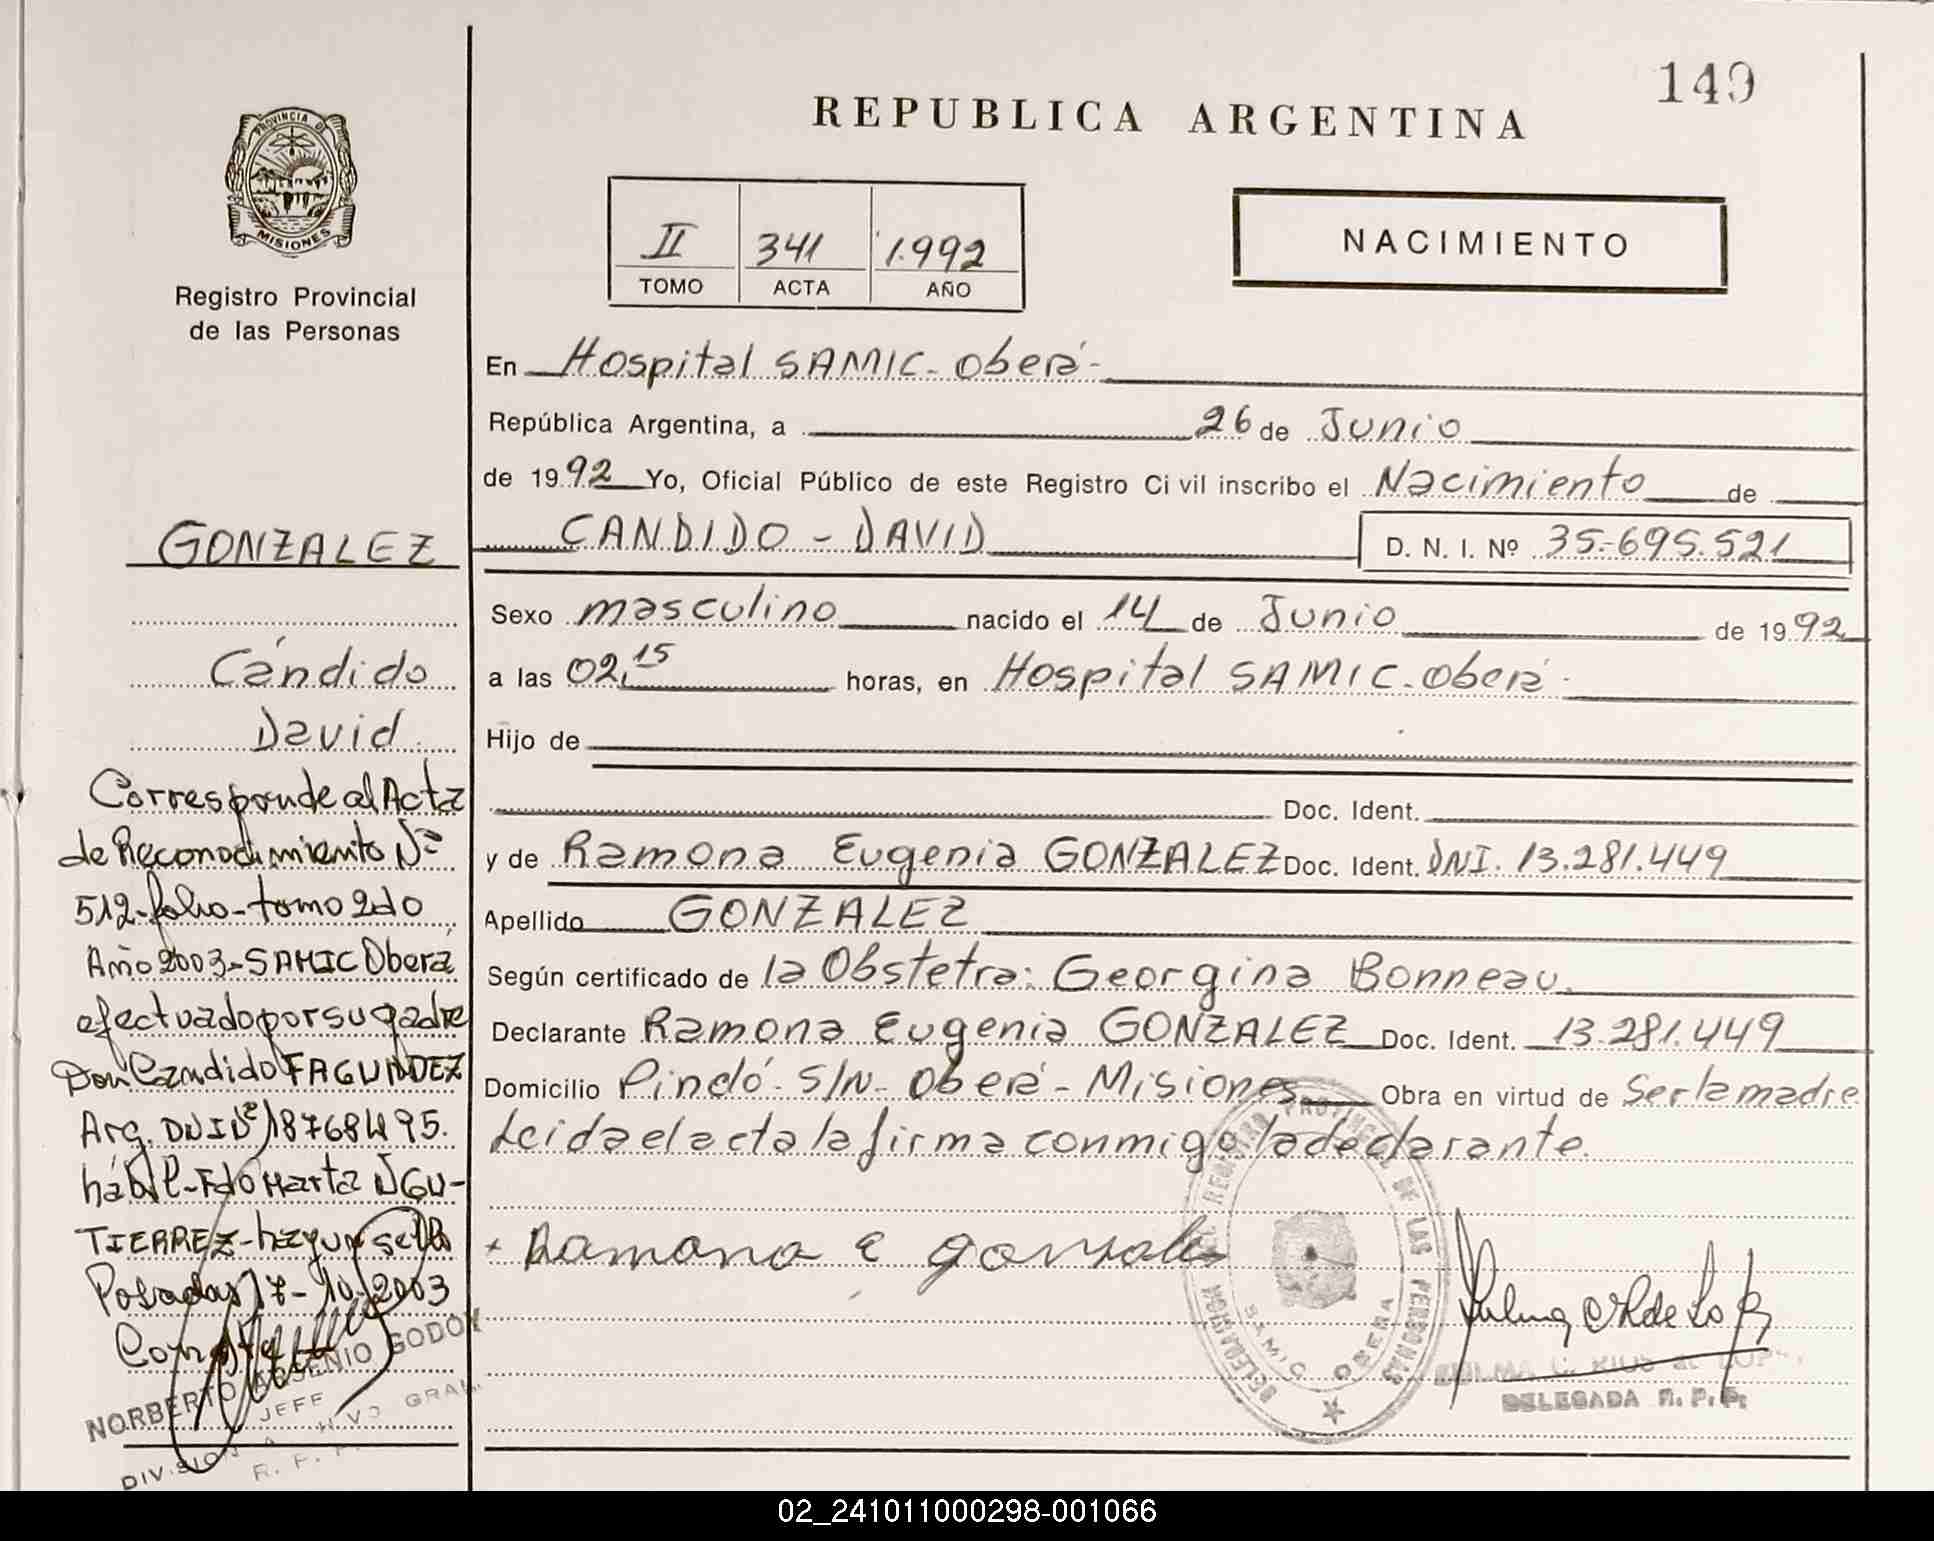 149
PROVINCIA DE
MISIONES
Registro Provincial
de las Personas
GONZALEZ
Cándido
David
Corresponde al Acta
de Reconocimiento Nº
512-folio-tomo 2do
Año 2003-SAMIC Oberá
efectuado por su padre
Don Candido FAGUNDEZ
Arg. DNI Nº 18768495.
hábil-Fdo Marta N GU-
TIERREZ-hay un sello
Posadas 17-10-2003
Conste
NORBERTO ARSENIO GODOY
JEFE
DIVISION
REPUBLICA ARGENTINA
II 341 1.992
TOMO ACTA AÑO
NACIMIENTO
En Hospital SAMIC-Oberá-
República Argentina, a 26 de Junio
de 1992 Yo, Oficial Público de este Registro Civil inscribo el Nacimiento de
CANDIDO - DAVID D. N. I. Nº 35.695.521
Sexo masculino nacido el 14 de Junio de 1992
a las 02,15 horas, en Hospital SAMIC-Oberá-
Hijo de
Doc. Ident.
y de Ramona Eugenia GONZALEZ Doc. Ident. DNI. 13.281.449
Apellido GONZALEZ
Según certificado de la Obstetra: Georgina Bonneau.
Declarante Ramona Eugenia GONZALEZ Doc. Ident. 13.281.449
Domicilio Pindó-S/N-Oberá-Misiones Obra en virtud de Ser la madre
Leida el acta la firma conmigo la declarante.
Ramona E gonzalez
DELEGACION DEL REGISTRO PROVINCIAL DE LAS PERSONAS
SAMIC OBERA
DELEGADA R. P. P.
02_241011000298-001066